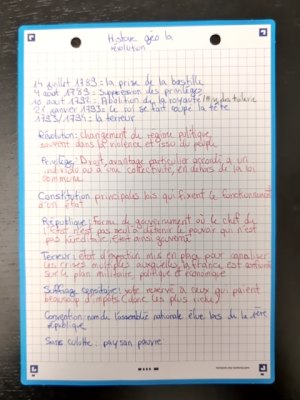 Histoire géo la
révolution
14 juillet 1789 : la prise de la bastille
4 août 1789 : Suppression des privilèges
10 août 1792 : Abolition de la royauté
21 janvier 1793 : le roi se fait coupé la tête
1793/1794 : la terreur
Révolution : changement de régime politique,
souvent dans la violence et issu du peuple
Privilège : Droit, avantage particulier accordé à un
individu ou à une collectivité, en dehors de la loi
commune
Constitution principales lois qui fixent le fonctionnement
d'un état
République : forme de gouvernement où le chef de
l'état n'est pas seul à détenir le pouvoir qui n'est
pas héréditaire, état ainsi gouverné
Terreur : état d'exception mis en place pour
les crises multiples auxquelles la france est
sur le plan militaire, politique et économique
Suffrage censitaire : vote réservé à ceux qui paient
beaucoup d'impôts (donc les plus riches)
Convention nom de l'assemblée nationale élue lors de la 1ère
république
Sans culotte : paysan pauvre